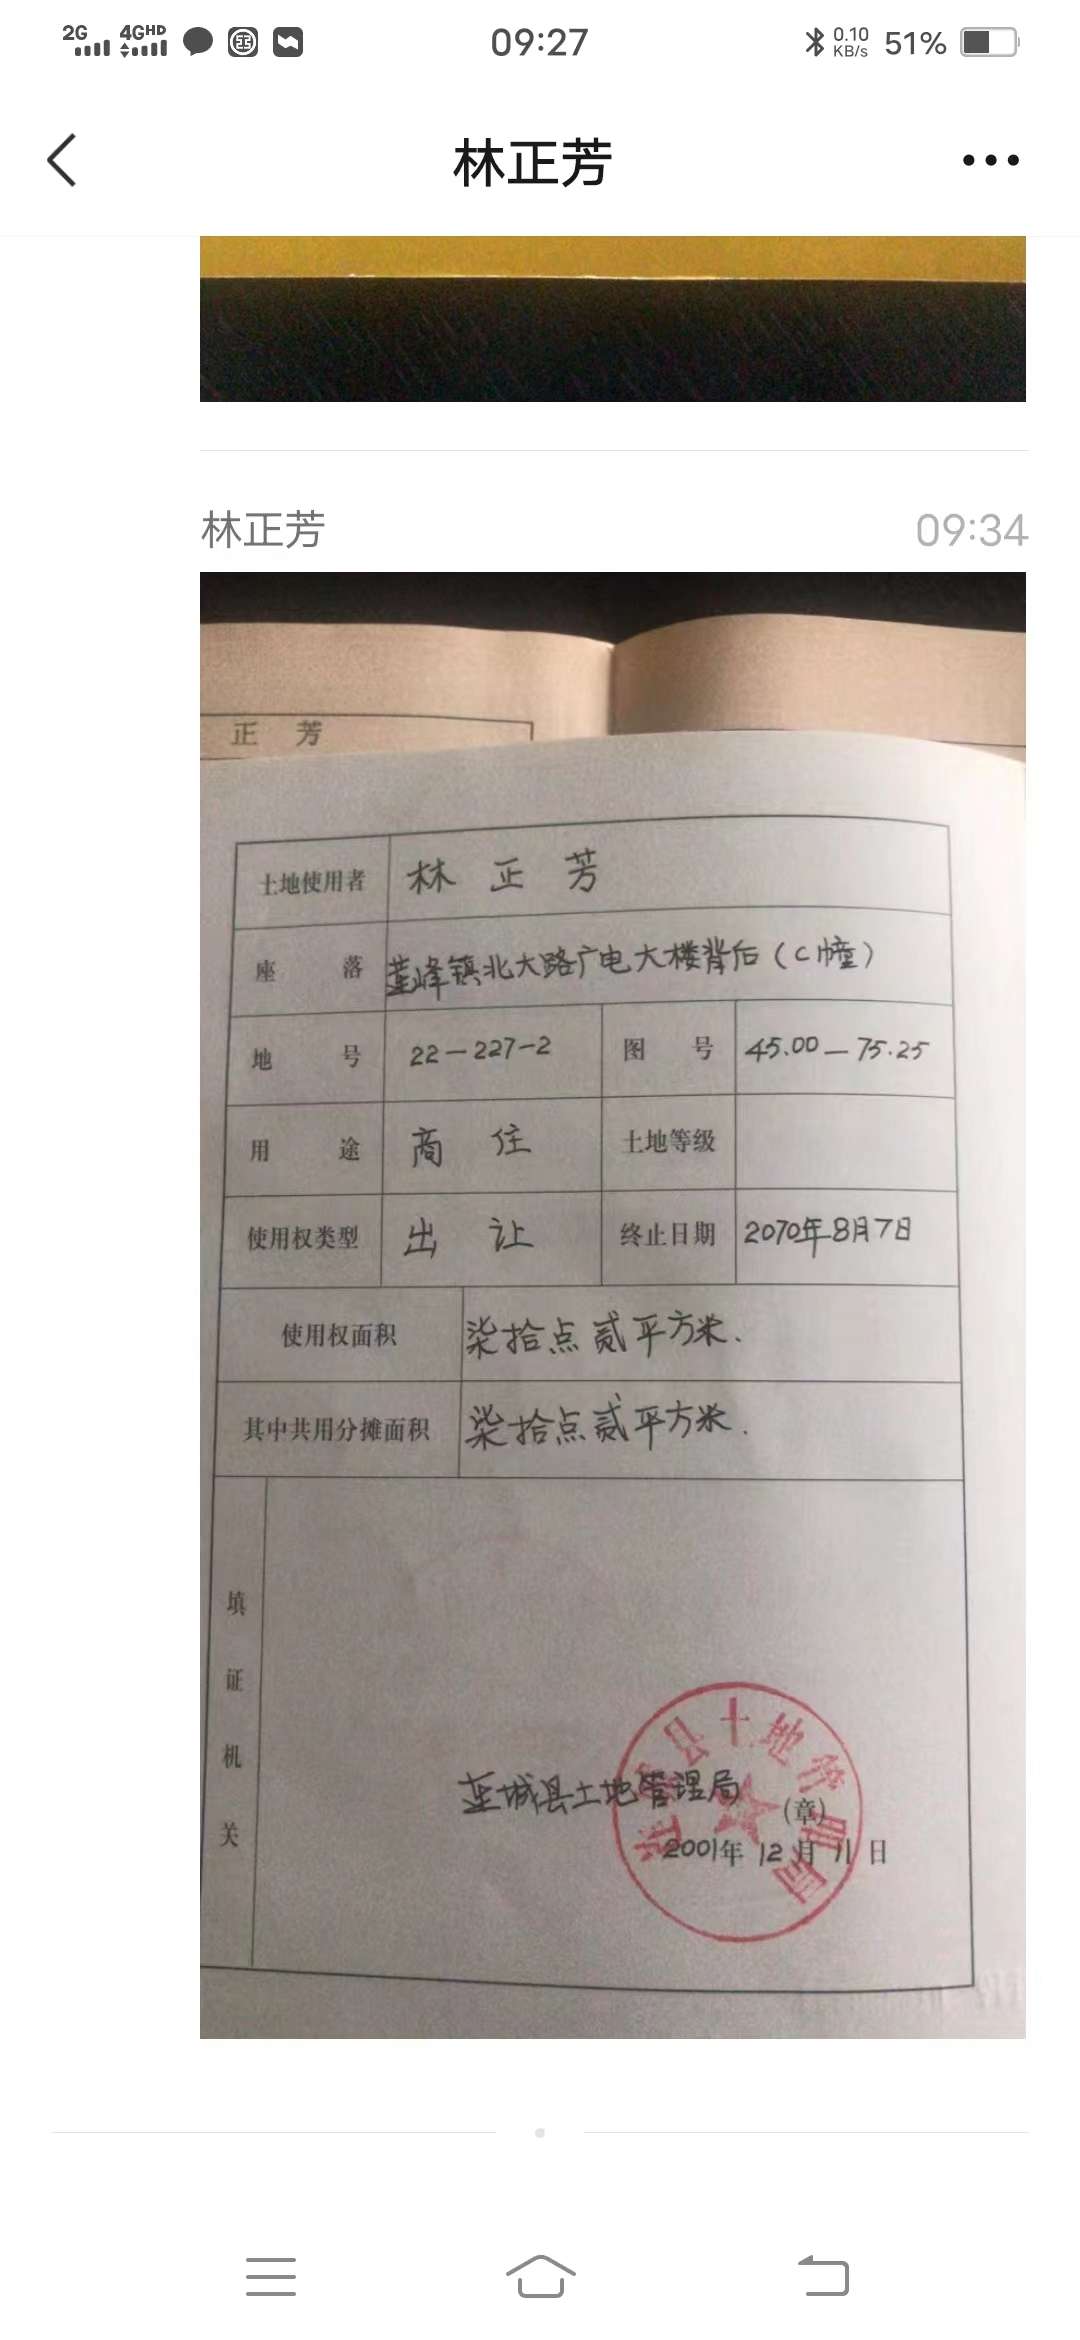 2G 4GHD 09:27 0.10 KB/s 51%
林正芳
林正芳 09:34
正 芳
土地使用者 林 正 芳
座 落 莲峰镇北大路广电大楼背后(C幢)
地 号 22-227-2 图 号 45.00-75.25
用 途 商 住 土地等级
使用权类型 出 让 终止日期 2070年8月7日
使用权面积 柒拾点贰平方米.
其中共用分摊面积 柒拾点贰平方米.
填证机关
县土地管 局
城县土地管理局 (章)
2001年12月11日